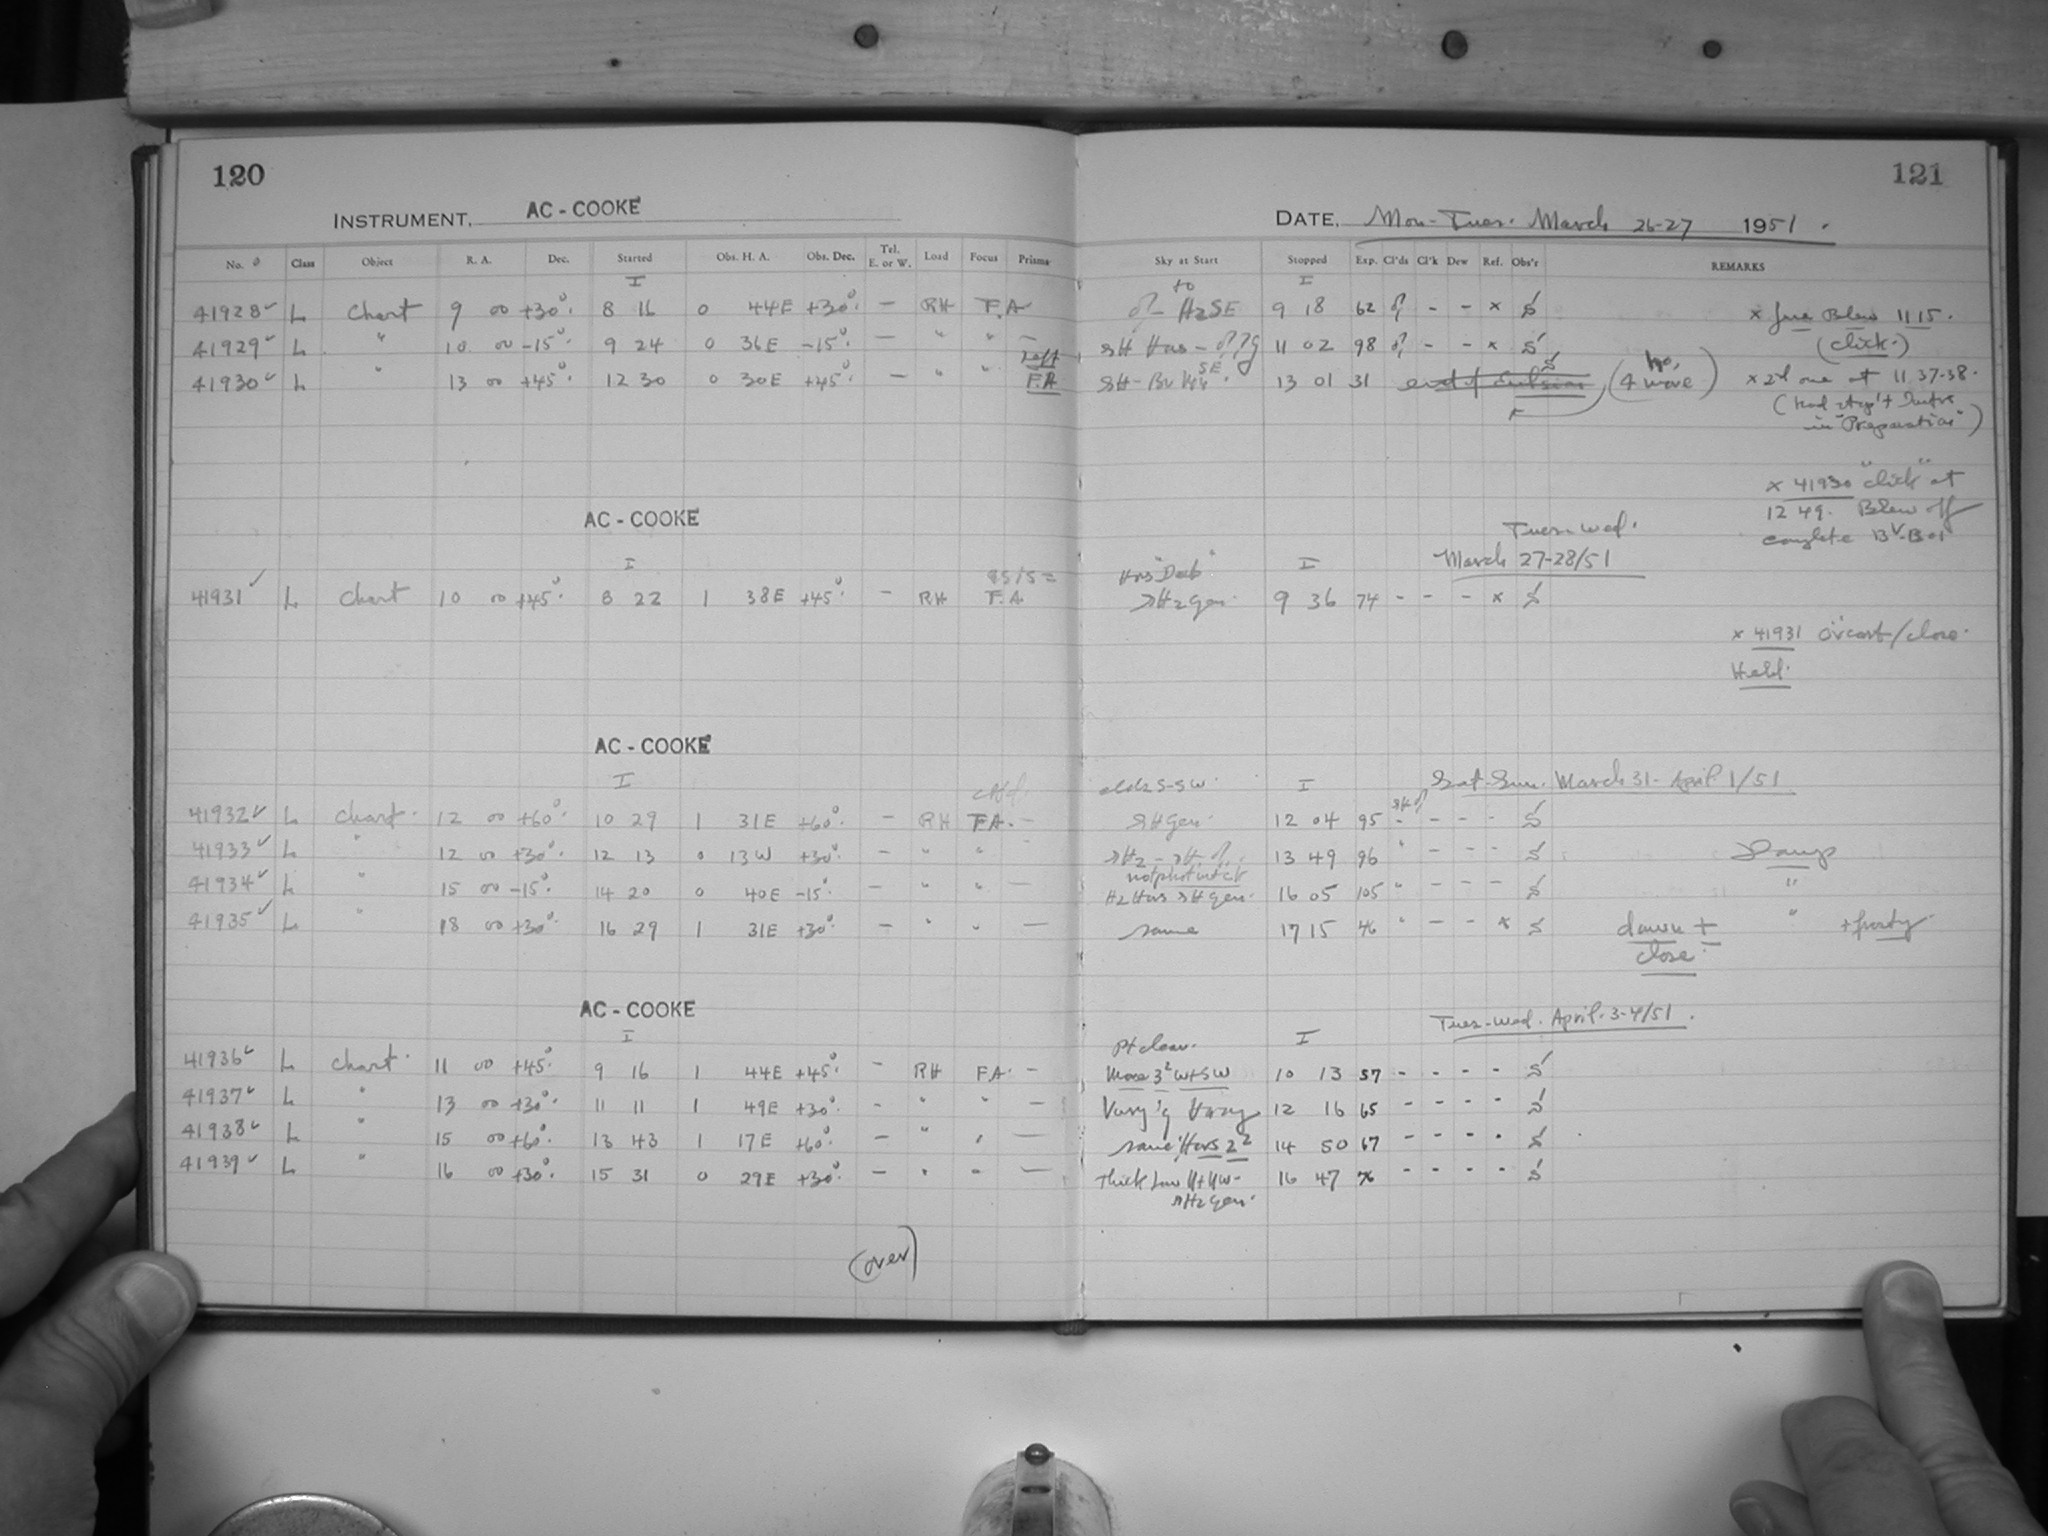 120
INSTRUMENT, AC - COOKE
No. Class Object R. A. Dec. Started Obs. H. A. Obs. Dec. Tel. E. or W. Load Focus Prisms
I
41928 L Chart 9 00 +30° 8 16 0 44E +30° - RH F.A
41929 L " 10 00 -15° 9 24 0 36E -15° - " " -
41930 L " 13 00 +45° 12 30 0 30E +45° - " " F.A
AC - COOKE
I
41931 L Chart 10 00 +45° 8 22 1 38E +45° - RH F.A
AC - COOKE
I
41932 L Chart 12 00 +60° 10 29 1 31E +60° - RH F.A. -
41933 L " 12 00 +30° 12 13 0 13W +30° - " "
41934 L " 15 00 -15° 14 20 0 40E -15° - " " -
41935 L " 18 00 +30° 16 29 1 31E +30° - " " -
AC - COOKE
I
41936 L Chart 11 00 +45° 9 16 1 44E +45° - RH FA. -
41937 L " 13 00 +30° 11 11 1 49E +30° - " " -
41938 L " 15 00 +60° 13 43 1 17E +60° - " " -
41939 L " 16 00 +30° 15 31 0 29E +30° - " " -
(over)
121
DATE, Mon-Tues. March 26-27 1951.
Sky at Start Stopped Exp. Cl'ds Cl'k Dew Ref. Obs'r REMARKS
to I
H2SE 9 18 62 - - x
11 02 98 - - x
SE 13 01 31 (4 more)
x fuse Blew 1115.
(click.)
x 2d one at 11 37-38.
in "Preparation")
x 41930 "click" at
12 49. Blew off
complete
Tues-Wed.
March 27-28/51
I
9 36 74 - - - x
x 41931 O'cast/close.
Held.
Sat-Sun. March 31- April 1/51
S-SW. I
gen. 12 04 95 - - - -
13 49 96 " - - - Damp
16 05 105 " - - - "
same 17 15 46 " - - x dawn + " + frosty
close
Tues-Wed. April 3-4/51.
Pt clear. I
More 3² W+SW 10 13 57 - - - -
Vary'g Hazy 12 16 65 - - - -
same, Hors 2² 14 50 67 - - - -
Thick low 16 47 76 - - - -
gen.